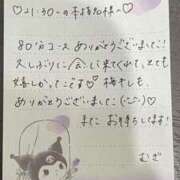 ♡21:30〜の本指名様へ♡
80分コースありがとうございました!
久しぶりに会えて
嬉しかったです♡梅干しも、
ありがとうございました(·ᵕ·)♪
またお待ちしてます!
むぎ